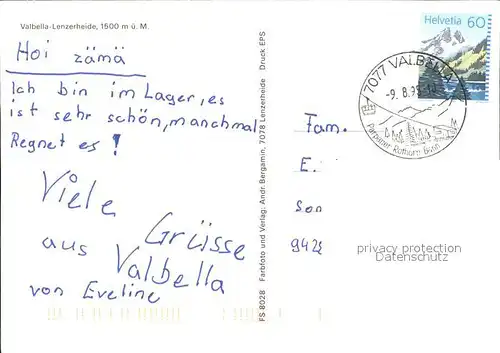 Valbella-Lenzerheide, 1500 m ü. M.
Helvetia 60
7077 VALBELLA
-9. 8.95-
Parpaner Rothorn
Hoi zämä
Ich bin im Lager, es
ist sehr schön, manchmal
Regnet es!
Viele
Grüsse
aus Valbella
von Eveline
FS 8028 Farbfoto und Verlag: Andr. Bergamin, 7078 Lenzerheide Druck EPS
Fam.
E.
Son
942
privacy protection
Datenschutz